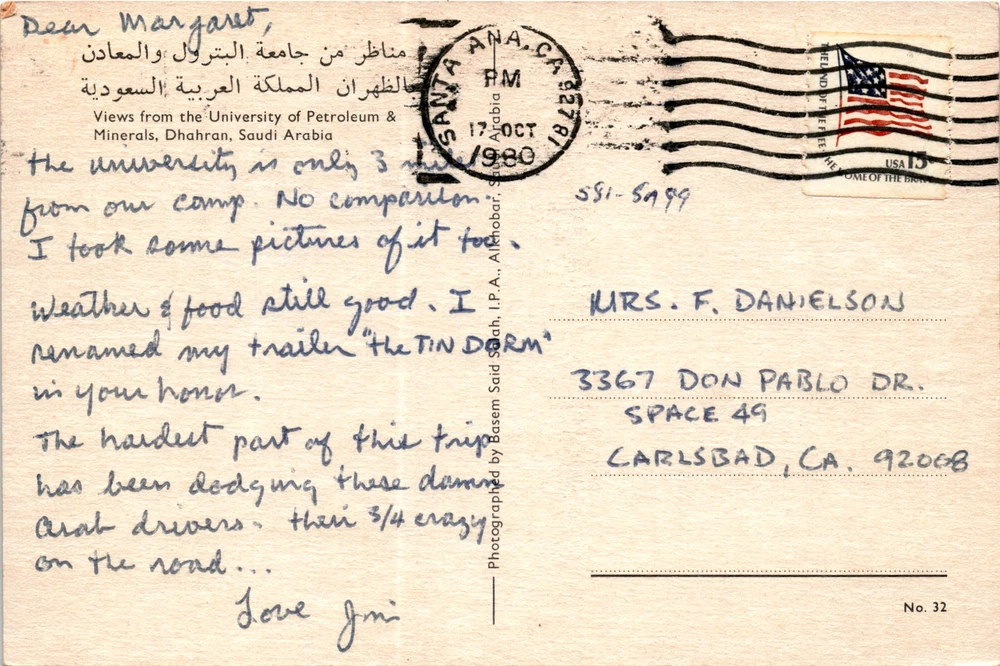 Dear Margaret,
مناظر من جامعة البترول والمعادن
الظهران المملكة العربية السعودية
Views from the University of Petroleum &
Minerals, Dhahran, Saudi Arabia
the university is only 3
from our camp. No comparison.
I took some pictures of it too.
Weather & food still good. I
renamed my trailer "the TIN DORM"
in your honor.
The hardest part of this trip
has been dodging these damn
arab drivers. their 3/4 crazy
on the road...
Love Jim
Photographed by Basem Said Salah, I.P.A., Alkhobar, Saudi Arabia
SANTA ANA, CA 92781
PM
17 OCT
1980
THE LAND OF THE FREE THE HOME OF THE
USA 15
MRS. F. DANIELSON
3367 DON PABLO DR.
SPACE 49
CARLSBAD, CA. 92008
No. 32